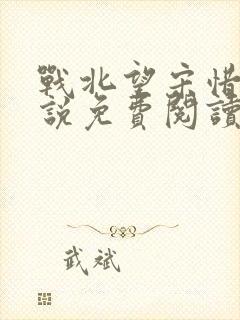 戰北望宋惜
說免費閱讀
武斌